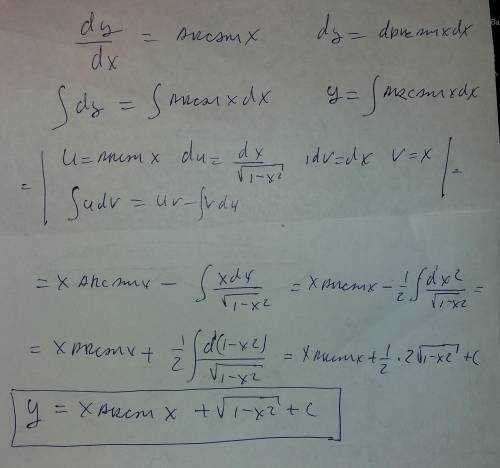 dy/dx = arcsin x    dy = darcsin x dx
∫dy = ∫arcsin x dx    y = ∫arcsin x dx
= | u = arcsin x  du = dx/√(1-x²)  , dv = dx  v = x | =
∫u dv = uv - ∫v du
= x arcsin x - ∫ x dy/√(1-x²) = x arcsin x - 1/2 ∫ dx²/√(1-x²) =
= x arcsin x + 1/2 ∫ d(1-x²)/√(1-x²) = x arcsin x + 1/2 · 2√(1-x²) + c
y = x arcsin x + √(1-x²) + c